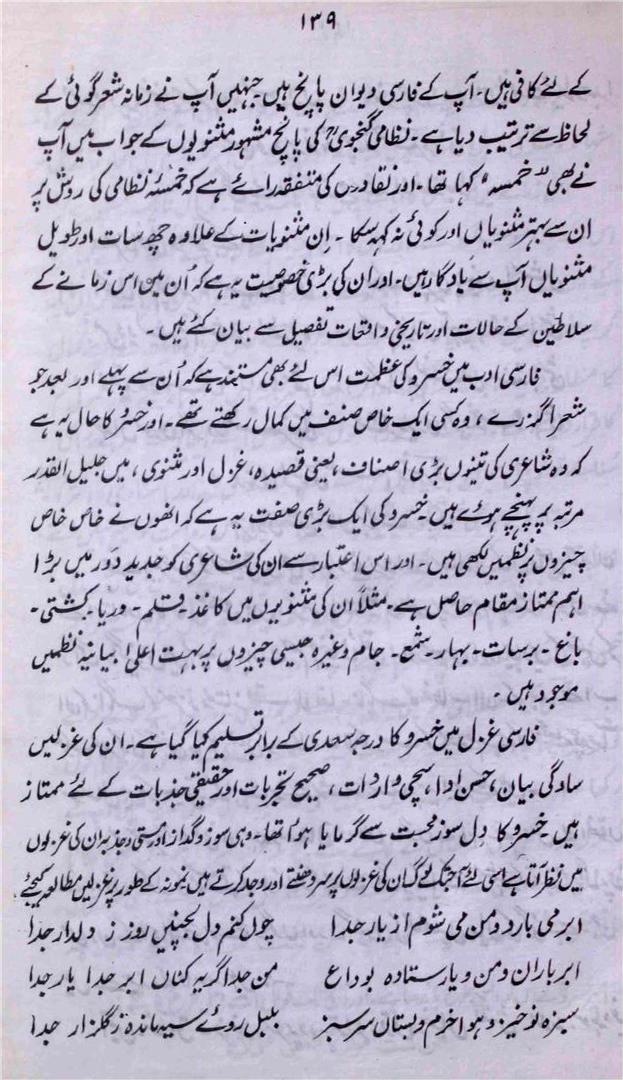 ۱۳۹
کے لئے کافی ہیں۔ آپ کے فارسی دیوان پانچ ہیں جنہیں آپ نے زمانہ شعرگوئی کے
لحاظ سے ترتیب دیا ہے۔ نظامی گنجوی کی پانچ مشہور مثنویوں کے جواب میں آپ
نے بھی "خمسہ" کہا تھا۔ اور نقادوں کی متفقہ رائے ہے کہ خمسۂ نظامی کی روش پر
ان سے بہتر مثنویاں اور کوئی نہ کہہ سکا۔ اِن مثنویات کے علاوہ چھ سات اور طویل
مثنویاں آپ سے یادگار ہیں۔ اور ان کی بڑی خصوصیت یہ ہے کہ اُن میں اس زمانے کے
سلاطین کے حالات اور تاریخی واقعات تفصیل سے بیان کئے ہیں۔
فارسی ادب میں خسرو کی عظمت اس لئے بھی مستند ہے کہ اُن سے پہلے اور بعد جو
شعرا گزرے، وہ کسی ایک خاص صنف میں کمال رکھتے تھے۔ اور خسرو کا حال یہ ہے
کہ وہ شاعری کی تینوں بڑی اصناف، یعنی قصیدہ، غزل اور مثنوی، میں جلیل القدر
مرتبہ پر پہنچے ہوئے ہیں۔ خسرو کی ایک بڑی صفت یہ ہے کہ انھوں نے خاص خاص
چیزوں پر نظمیں لکھی ہیں۔ اور اس اعتبار سے ان کی شاعری کو جدید دَور میں بڑا
اہم ممتاز مقام حاصل ہے۔ مثلاً ان کی مثنویوں میں کاغذ۔ قلم۔ دریا۔ کشتی۔
باغ۔ برسات۔ بہار۔ شمع۔ جام وغیرہ جیسی چیزوں پر بہت اعلیٰ بیانیہ نظمیں
موجود ہیں۔
فارسی غزل میں خسرو کا درجہ سعدی کے برابر تسلیم کیا گیا ہے۔ ان کی غزلیں
سادگی بیان، حسن ادا، سچی واردات، صحیح تجربات اور حقیقی جذبات کے لئے ممتاز
ہیں خسرو کا دِل سوز محبت سے گرمایا ہوا تھا۔ وہی سوز و گداز اور مستی و جذبہ ان کی غزلوں
میں نظر آتا ہے اسی لئے آجتک لوگ ان کی غزلوں پر سر دھنتے اور وجد کرتے ہیں نمونہ کے طور پر غزلیں مطالعہ کیجئے
ابر می بارد و من می شوم از یار جدا چوں کنم دل بچنیں روز ز دلدار جدا
ابر باران و من و یارستادہ بوداع من جدا گریہ کناں ابر جدا یار جدا
سبزہ نوخیز و ہوا خرم و بستاں سرسبز بلبل روئے سیہ ماندہ زگلزار جدا